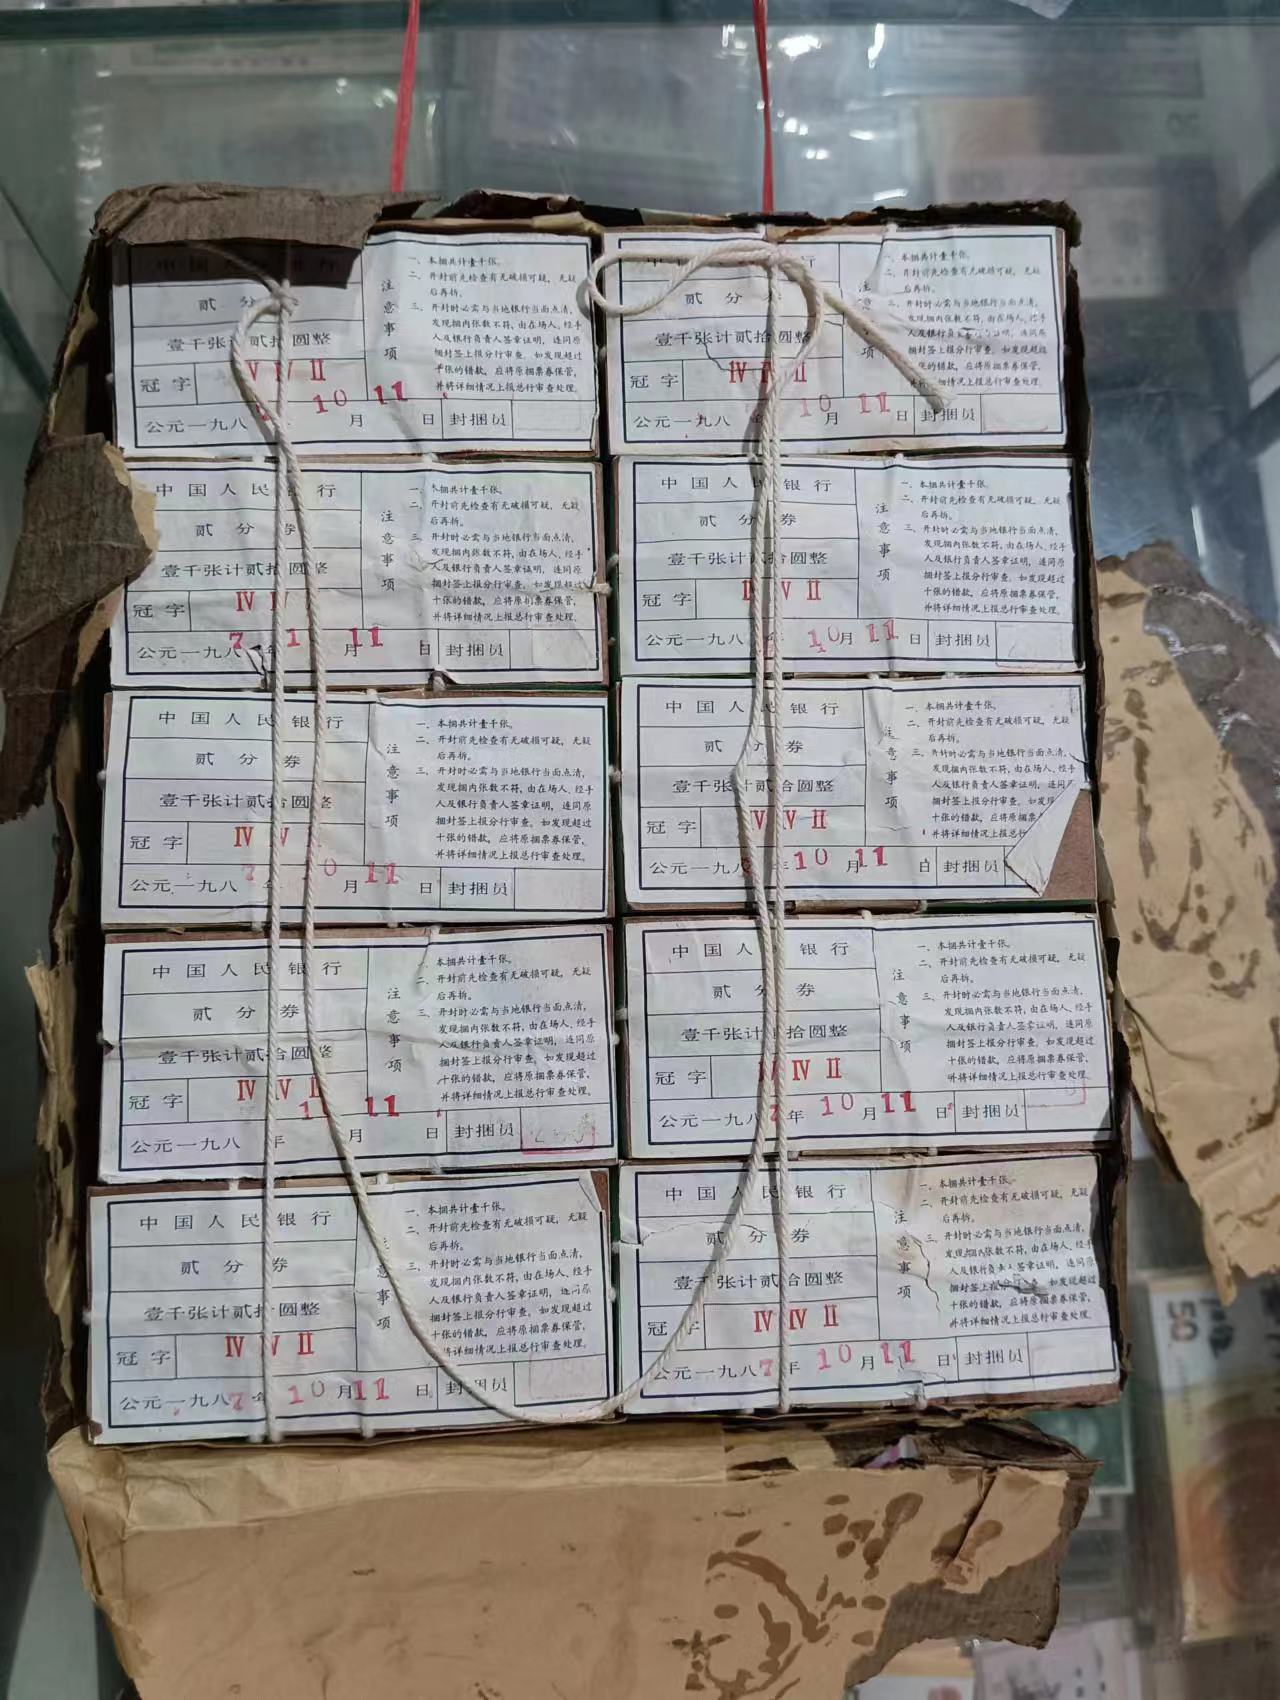 贰分券
壹千张计贰拾圆整
冠字 V IV II
公元一九八 10 月 11 日 封捆员
注意事项
一、本捆共计壹千张。
二、开封前先检查有无破损可疑，无疑
后再拆。
三、开封时必需与当地银行当面点清，
发现捆内张数不符，由在场人、经手
人及银行负责人签章证明，连同原
捆封签上报分行审查。如发现超过
十张的错款，应将原捆票券保管，
并将详细情况上报总行审查处理。
贰分券
壹千张计贰拾圆整
冠字 IV II
公元一九八 10 月 11 日 封捆员
事项
本捆共计壹千张。
二、开封前先检查有无破损可疑，无疑
后再拆。
三、开封时必需与当地银行当面点清，
发现捆内张数不符，由在场人、经手
人及银行负责人签章证明，连同原
捆封签上报分行审查。如发现超过
张的错款，应将原捆票券保管，
并将详细情况上报总行审查处理。
中国人民银行
贰分券
壹千张计贰拾圆整
冠字 IV
公元一九八7年 1 月 11 日
注意事项
一、本捆共计壹千张。
二、开封前先检查有无破损可疑，无疑
后再拆。
三、开封时必需与当地银行当面点清，
发现捆内张数不符，由在场人、经手
人及银行负责人签章证明，连同原
捆封签上报分行审查。如发现超过
十张的错款，应将原捆票券保管，
并将详细情况上报总行审查处理。
封捆员
中国人民银行
贰分券
壹千张计贰拾圆整
冠字 V II
公元一九八 年 10 月 11 日 封捆员
注意事项
一、本捆共计壹千张。
二、开封前先检查有无破损可疑，无疑
后再拆。
三、开封时必需与当地银行当面点清，
发现捆内张数不符，由在场人、经手
人及银行负责人签章证明，连同原
捆封签上报分行审查。如发现超过
十张的错款，应将原捆票券保管，
并将详细情况上报总行审查处理。
中国人民银行
贰分券
壹千张计贰拾圆整
冠字 IV V
公元一九八7年 10 月 11 日 封捆员
注意事项
一、本捆共计壹千张。
二、开封前先检查有无破损可疑，无疑
后再拆。
三、开封时必需与当地银行当面点清，
发现捆内张数不符，由在场人、经手
人及银行负责人签章证明，连同原
捆封签上报分行审查。如发现超过
十张的错款，应将原捆票券保管，
并将详细情况上报总行审查处理。
中国人民银行
贰分券
壹千张计贰拾圆整
冠字 IV V II
公元一九八 年 10 月 11 日 封捆员
注意事项
一、本捆共计壹千张。
二、开封前先检查有无破损可疑，无疑
后再拆。
三、开封时必需与当地银行当面点清，
发现捆内张数不符，由在场人、经手
人及银行负责人签章证明，连同原
捆封签上报分行审查。如发
十张的错款，应将原捆票
并将详细情况上报总行
中国人民银行
贰分券
壹千张计贰拾圆整
冠字 IV V
公元一九八 年 10 月 11 日 封捆员
注意事项
一、本捆共计壹千张。
二、开封前先检查有无破损可疑，无疑
后再拆。
三、开封时必需与当地银行当面点清，
发现捆内张数不符，由在场人、经手
人及银行负责人签章证明，连同原
捆封签上报分行审查。如发现超过
十张的错款，应将原捆票券保管，
并将详细情况上报总行审查处理。
中国人民银行
贰分券
壹千张计贰拾圆整
冠字 IV II
公元一九八7年 10 月 11 日 封捆员
注意事项
一、本捆共计壹千张。
二、开封前先检查有无破损可疑，无疑
后再拆。
三、开封时必需与当地银行当面点清，
发现捆内张数不符，由在场人、经手
人及银行负责人签章证明，连同原
捆封签上报分行审查。如发现超过
十张的错款，应将原捆票券保管，
并将详细情况上报总行审查处理。
中国人民银行
贰分券
壹千张计贰拾圆整
冠字 IV V II
公元一九八7年 10 月 11 日 封捆员
注意事项
一、本捆共计壹千张。
二、开封前先检查有无破损可疑，无疑
后再拆。
三、开封时必需与当地银行当面点清，
发现捆内张数不符，由在场人、经手
人及银行负责人签章证明，连同原
捆封签上报分行审查。如发现超过
十张的错款，应将原捆票券保管，
将详细情况上报总行审查处理。
中国人民银行
贰分券
壹千张计贰拾圆整
冠字 IV IV II
公元一九八7年 10 月 11 日 封捆员
注意事项
一、本捆共计壹千张。
二、开封前先检查有无破损可疑，无疑
后再拆。
三、开封时必需与当地银行当面点清，
发现捆内张数不符，由在场人、经手
人及银行负责人签章证明，连同原
捆封签上报分行审查。如发现超过
十张的错款，应将原捆票券保管，
并将详细情况上报总行审查处理。
50